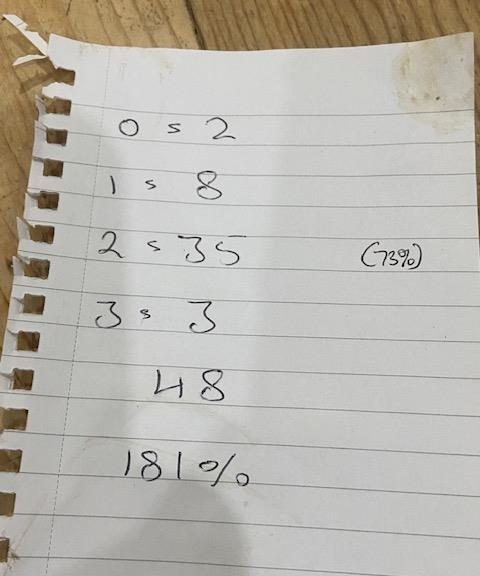 0s 2
1s 8
2s 35 (73%)
3s 3
48
181%